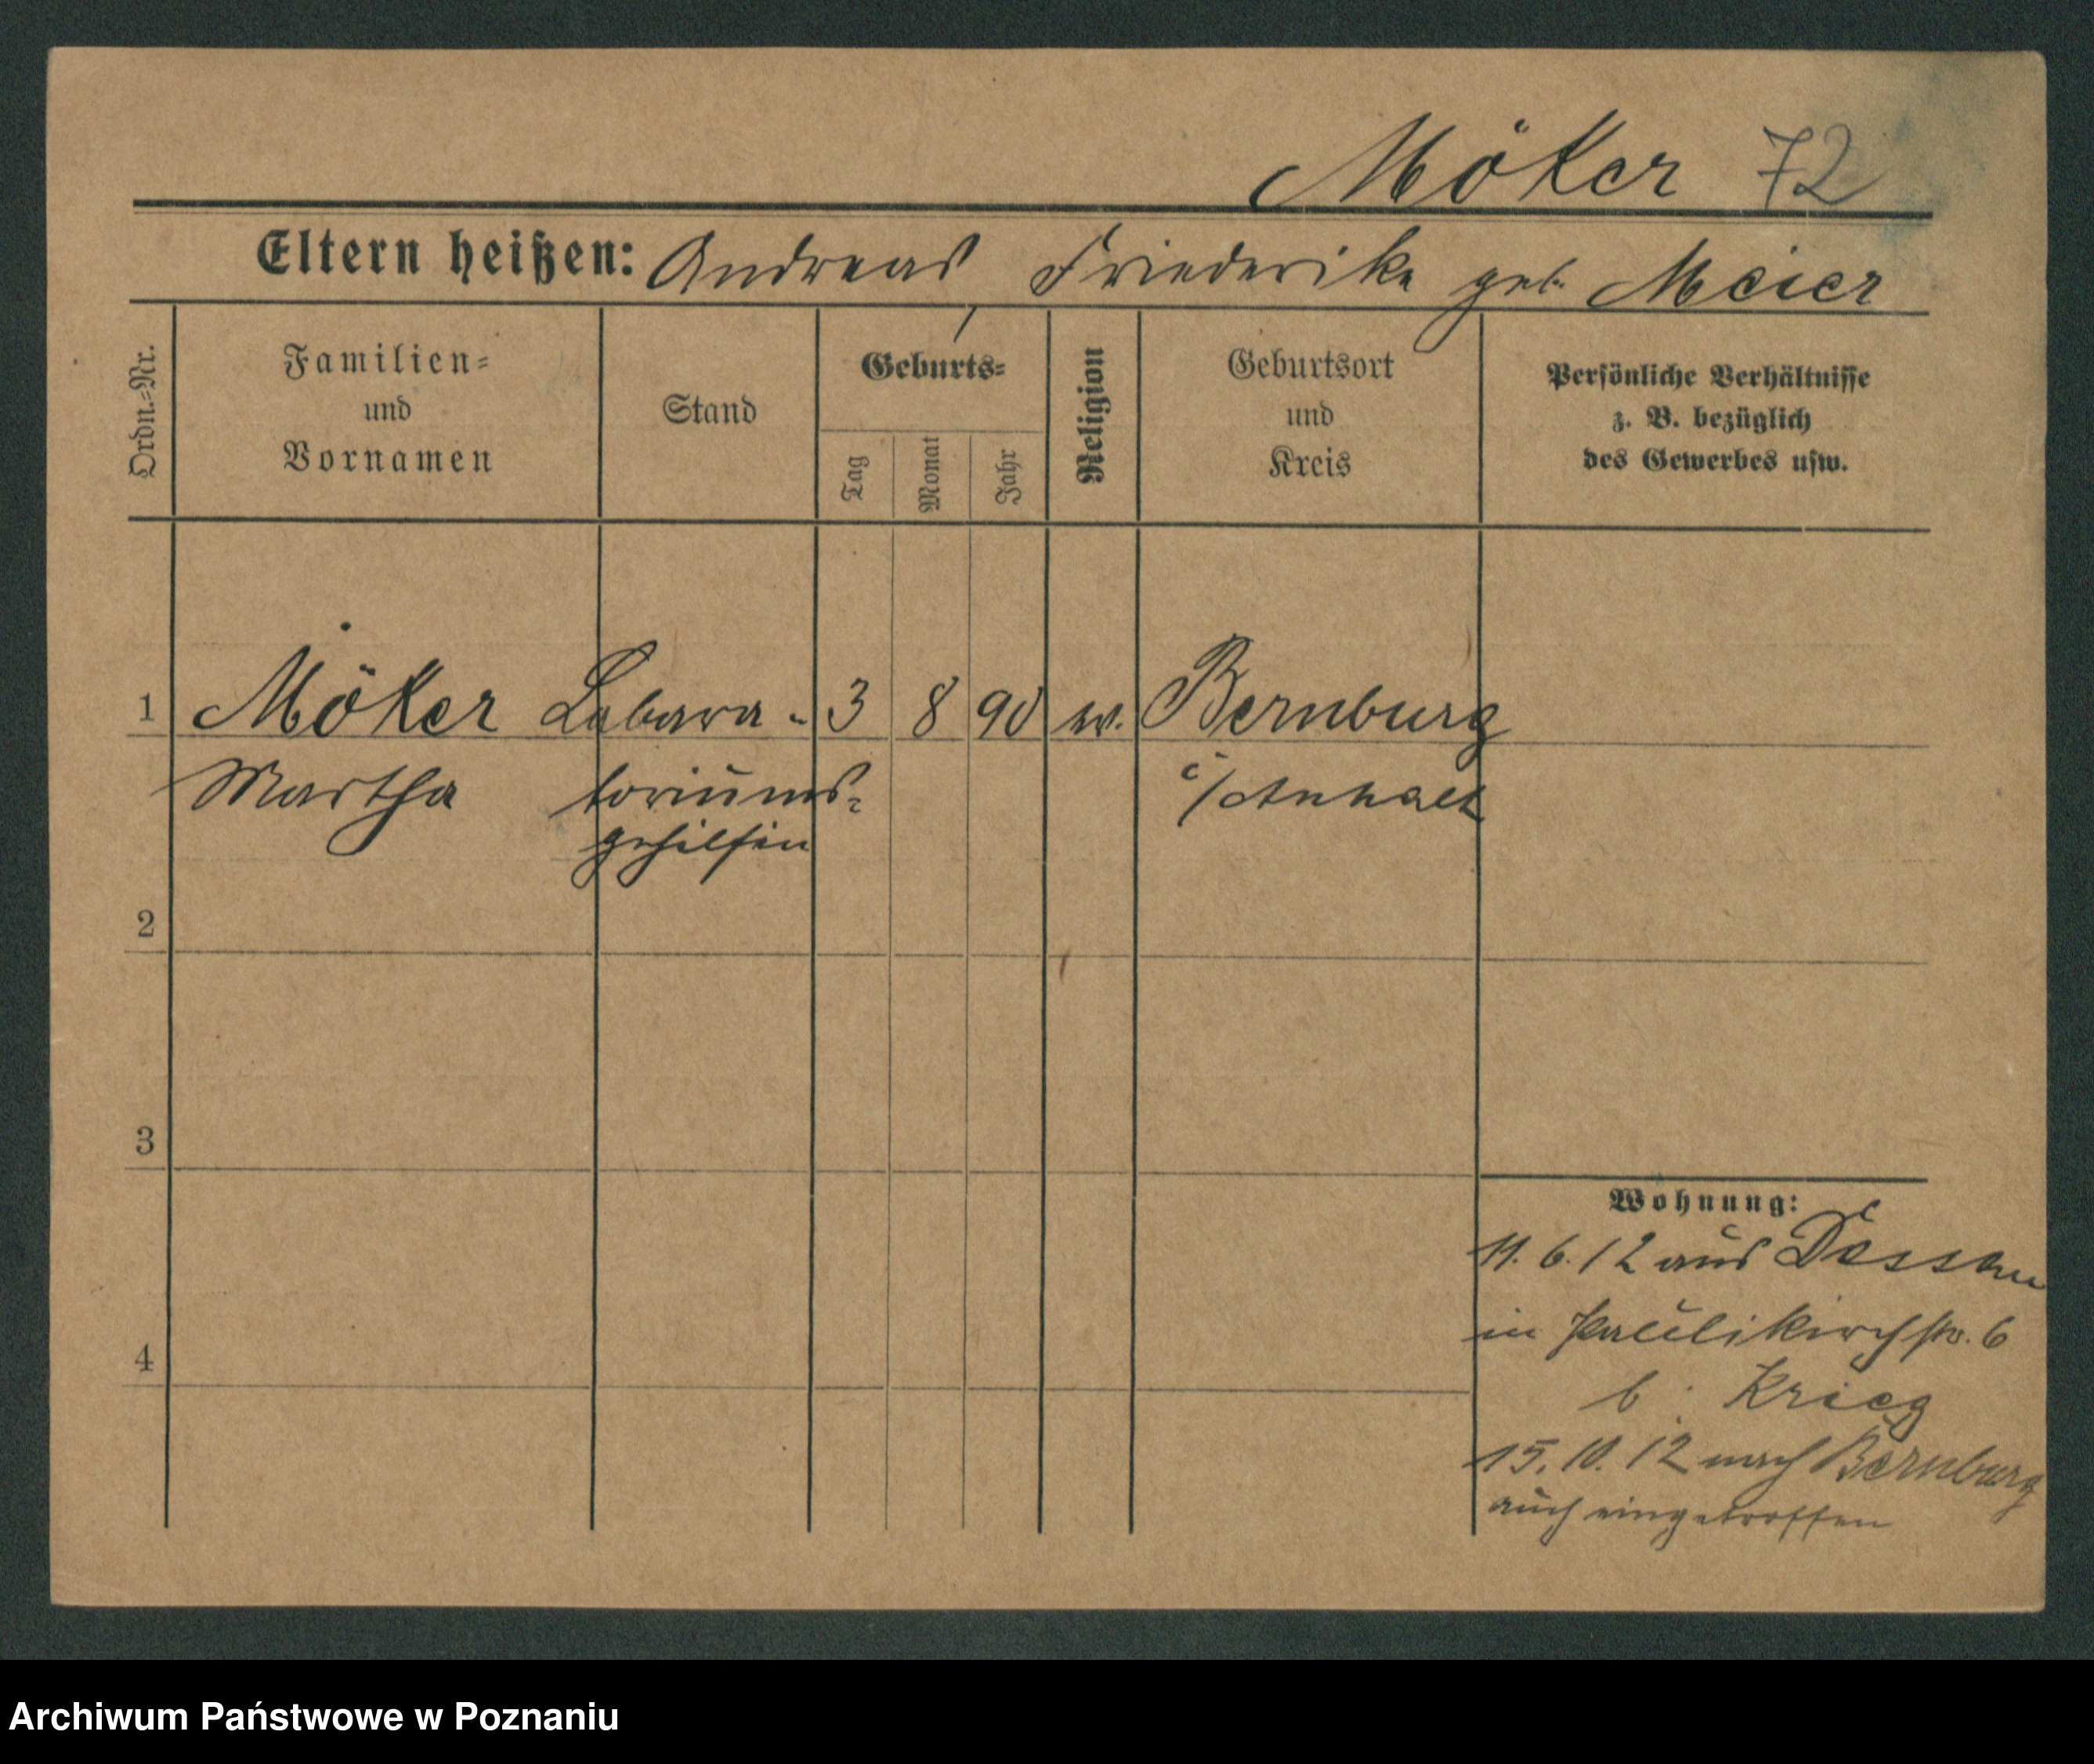 Möker 72
Eltern heißen: Andreas Friederike geb. Meier
Ordn.=Nr.
Familien=
und
Vornamen
Stand
Geburts=
Tag
Monat
Jahr
Religion
Geburtsort
und
Kreis
Persönliche Verhältnisse
z. B. bezüglich
des Gewerbes usw.
1 Möker Labora- 3 8 90 ev. Bernburg
Martha toriums= i/Anhalt
gehilfin
2
3
4
Wohnung:
11. 6. 12 aus Dessau
in Paulikirchstr. 6
b. Krieg
15. 10. 12 nach Bernburg
auch eingetroffen
Archiwum Państwowe w Poznaniu